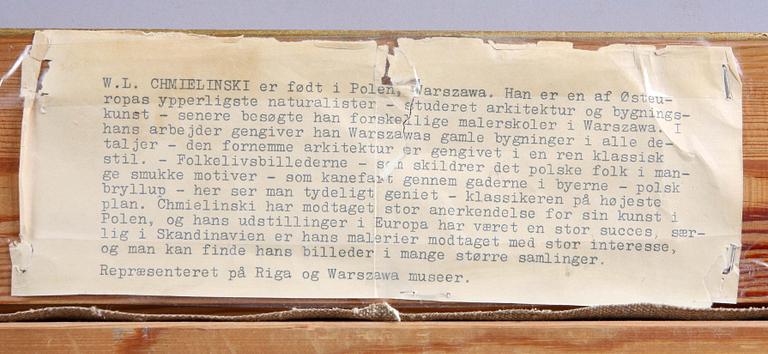 W.L. CHMIELINSKI er født i Polen, Warszawa. Han er en af Østeu-
ropas ypperligste naturalister - studeret arkitektur og bygnings-
kunst - senere besøgte han forskellige malerskoler i Warszawa. I
hans arbejder gengiver han Warszawas gamle bygninger i alle de-
taljer - den fornemme arkitektur er gengivet i en ren klassisk
stil. - Folkelivsbillederne - som skildrer det polske folk i man-
ge smukke motiver - som kanefart gennem gaderne i byerne - polsk
bryllup - her ser man tydeligt geniet - klassikeren på højeste
plan. Chmielinski har modtaget stor anerkendelse for sin kunst i
Polen, og hans udstillinger i Europa har været en stor succes, sær-
lig i Skandinavien er hans malerier modtaget med stor interesse,
og man kan finde hans billeder i mange større samlinger.
Repræsenteret på Riga og Warszawa museer.